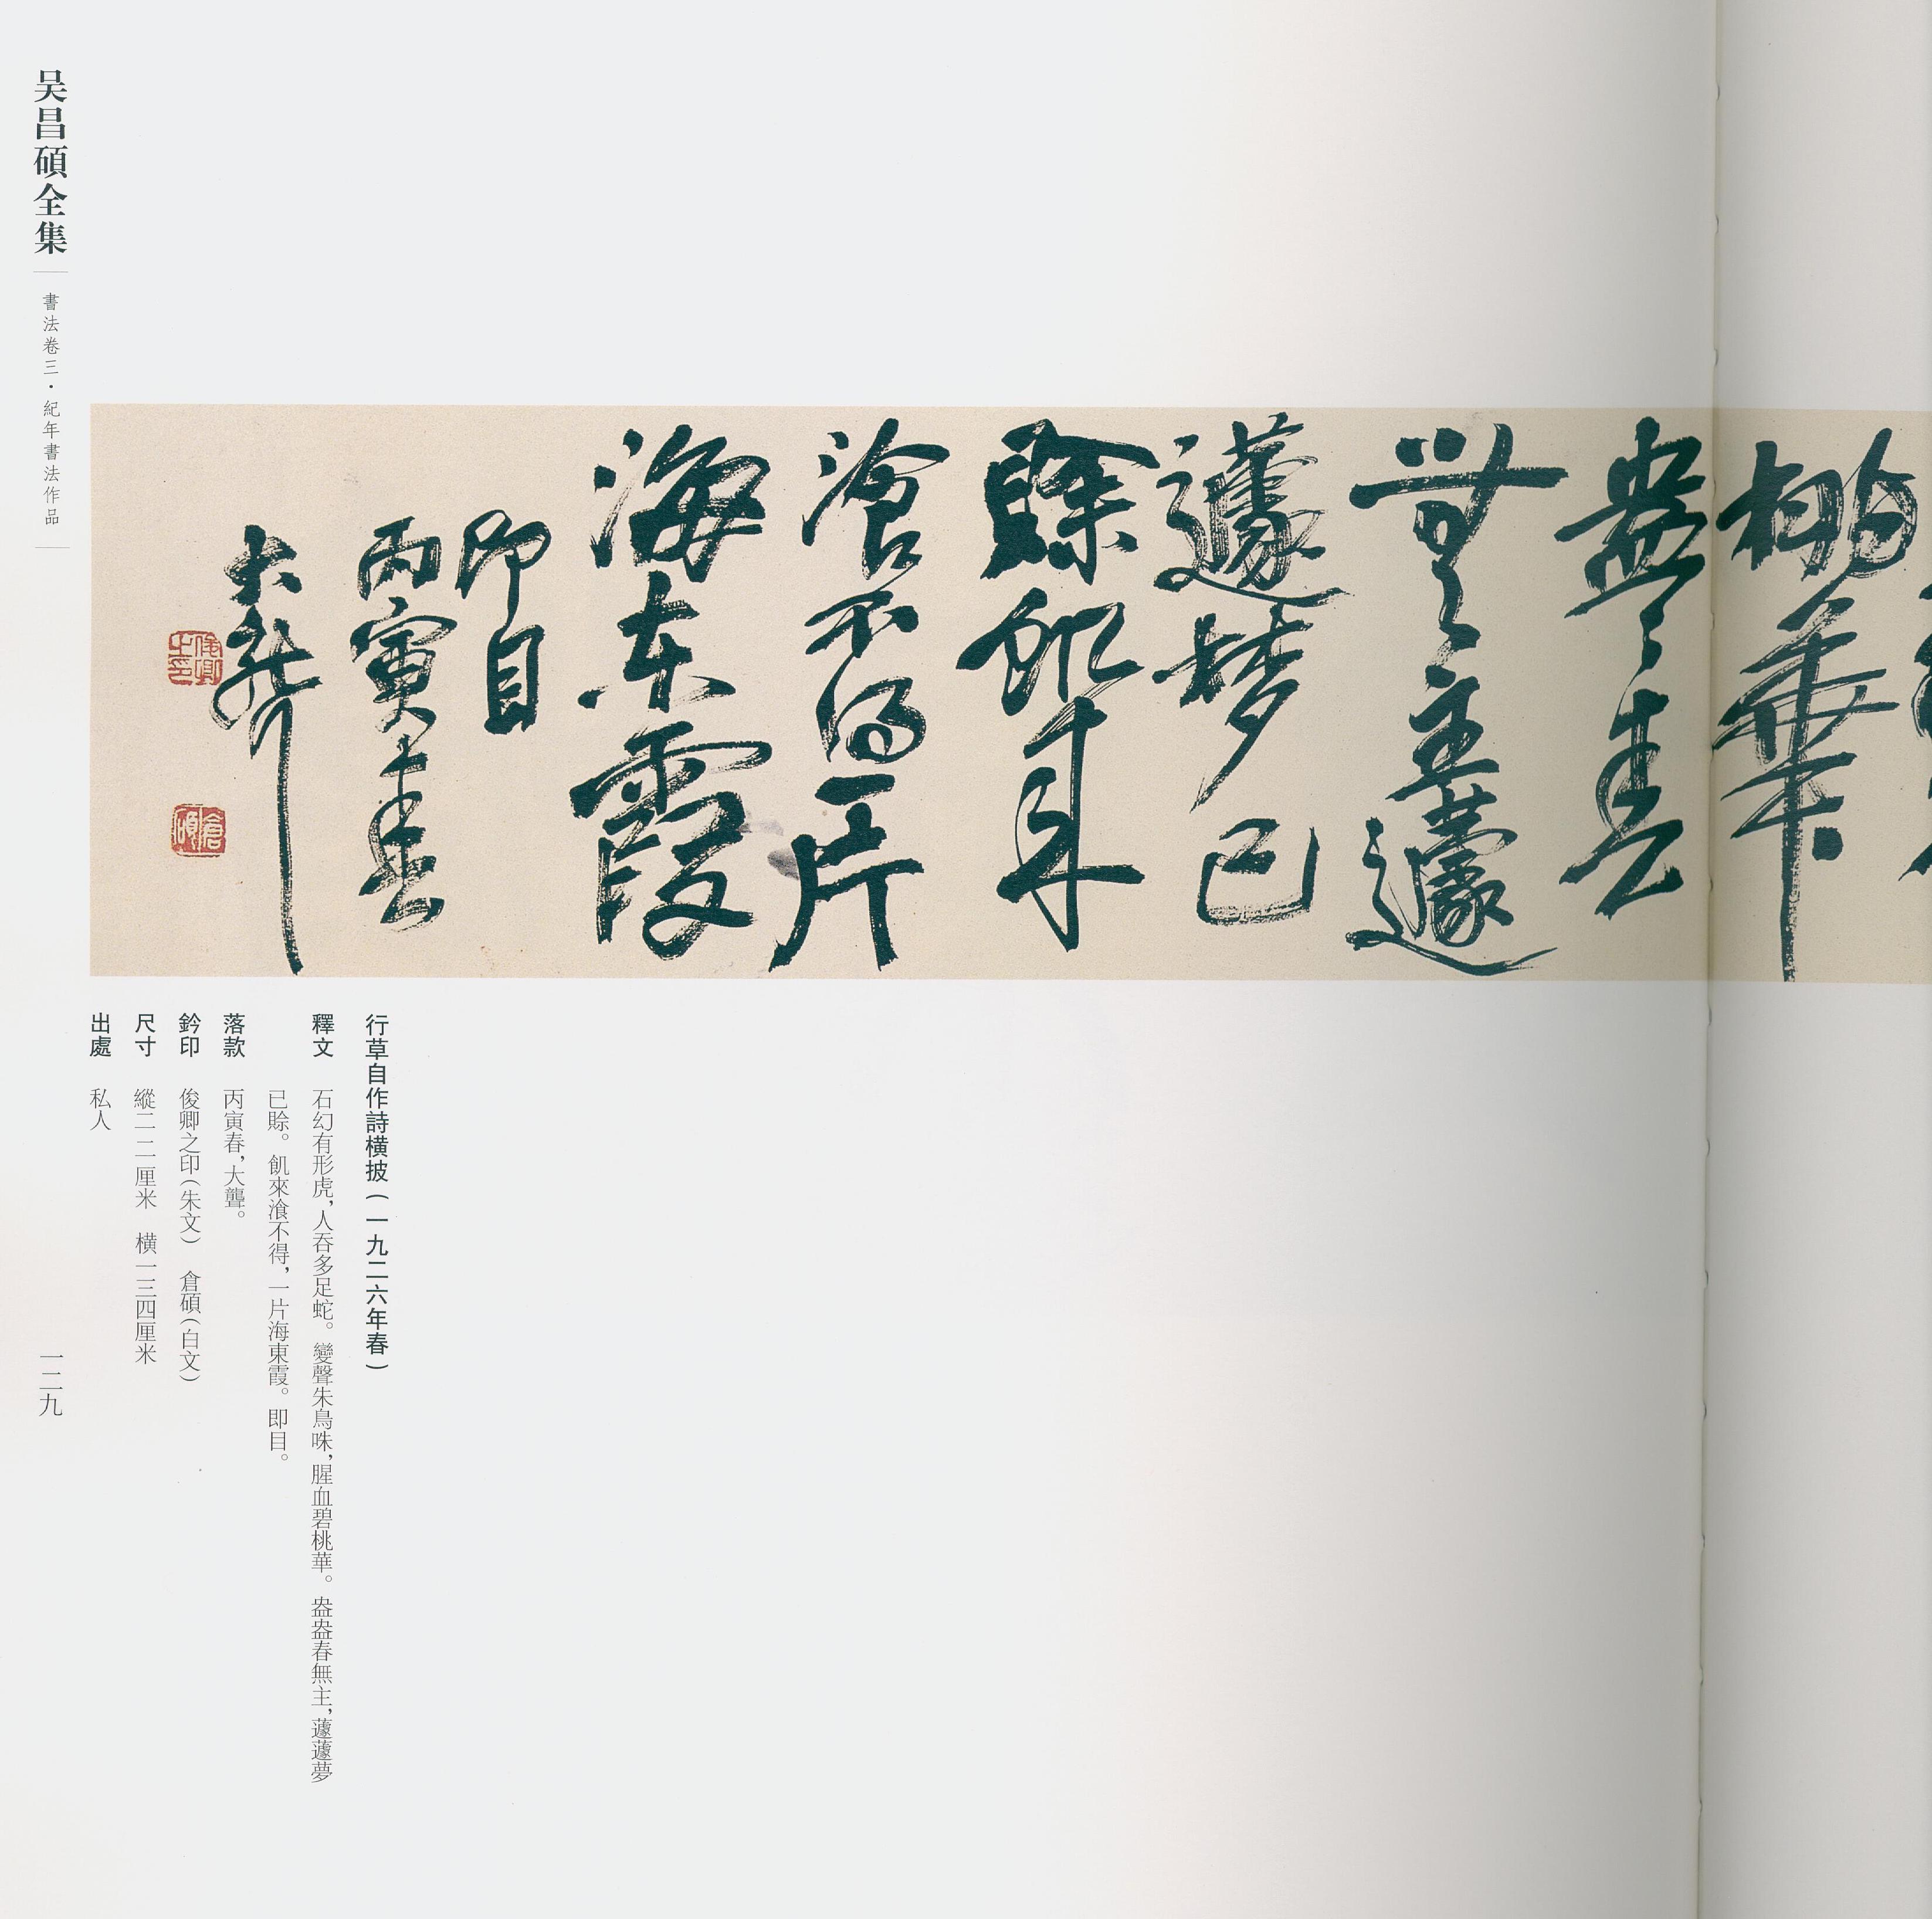 桃華
盎〻春
無主蘧
蘧夢已
賒飢來
湌不得一片
海东霞
即目
丙寅春
大聾
俊卿之印
倉碩
行草自作詩橫披（一九二六年春）
釋文 石幻有形虎，人吞多足蛇。變聲朱鳥咮，腥血碧桃華。盎盎春無主，蘧蘧夢
已賒。飢來湌不得，一片海東霞。即目。
落款 丙寅春，大聾。
鈐印 俊卿之印（朱文） 倉碩（白文）
尺寸 縱二二厘米 橫一三四厘米
出處 私人
吴昌碩全集
書法卷三・紀年書法作品
一二九